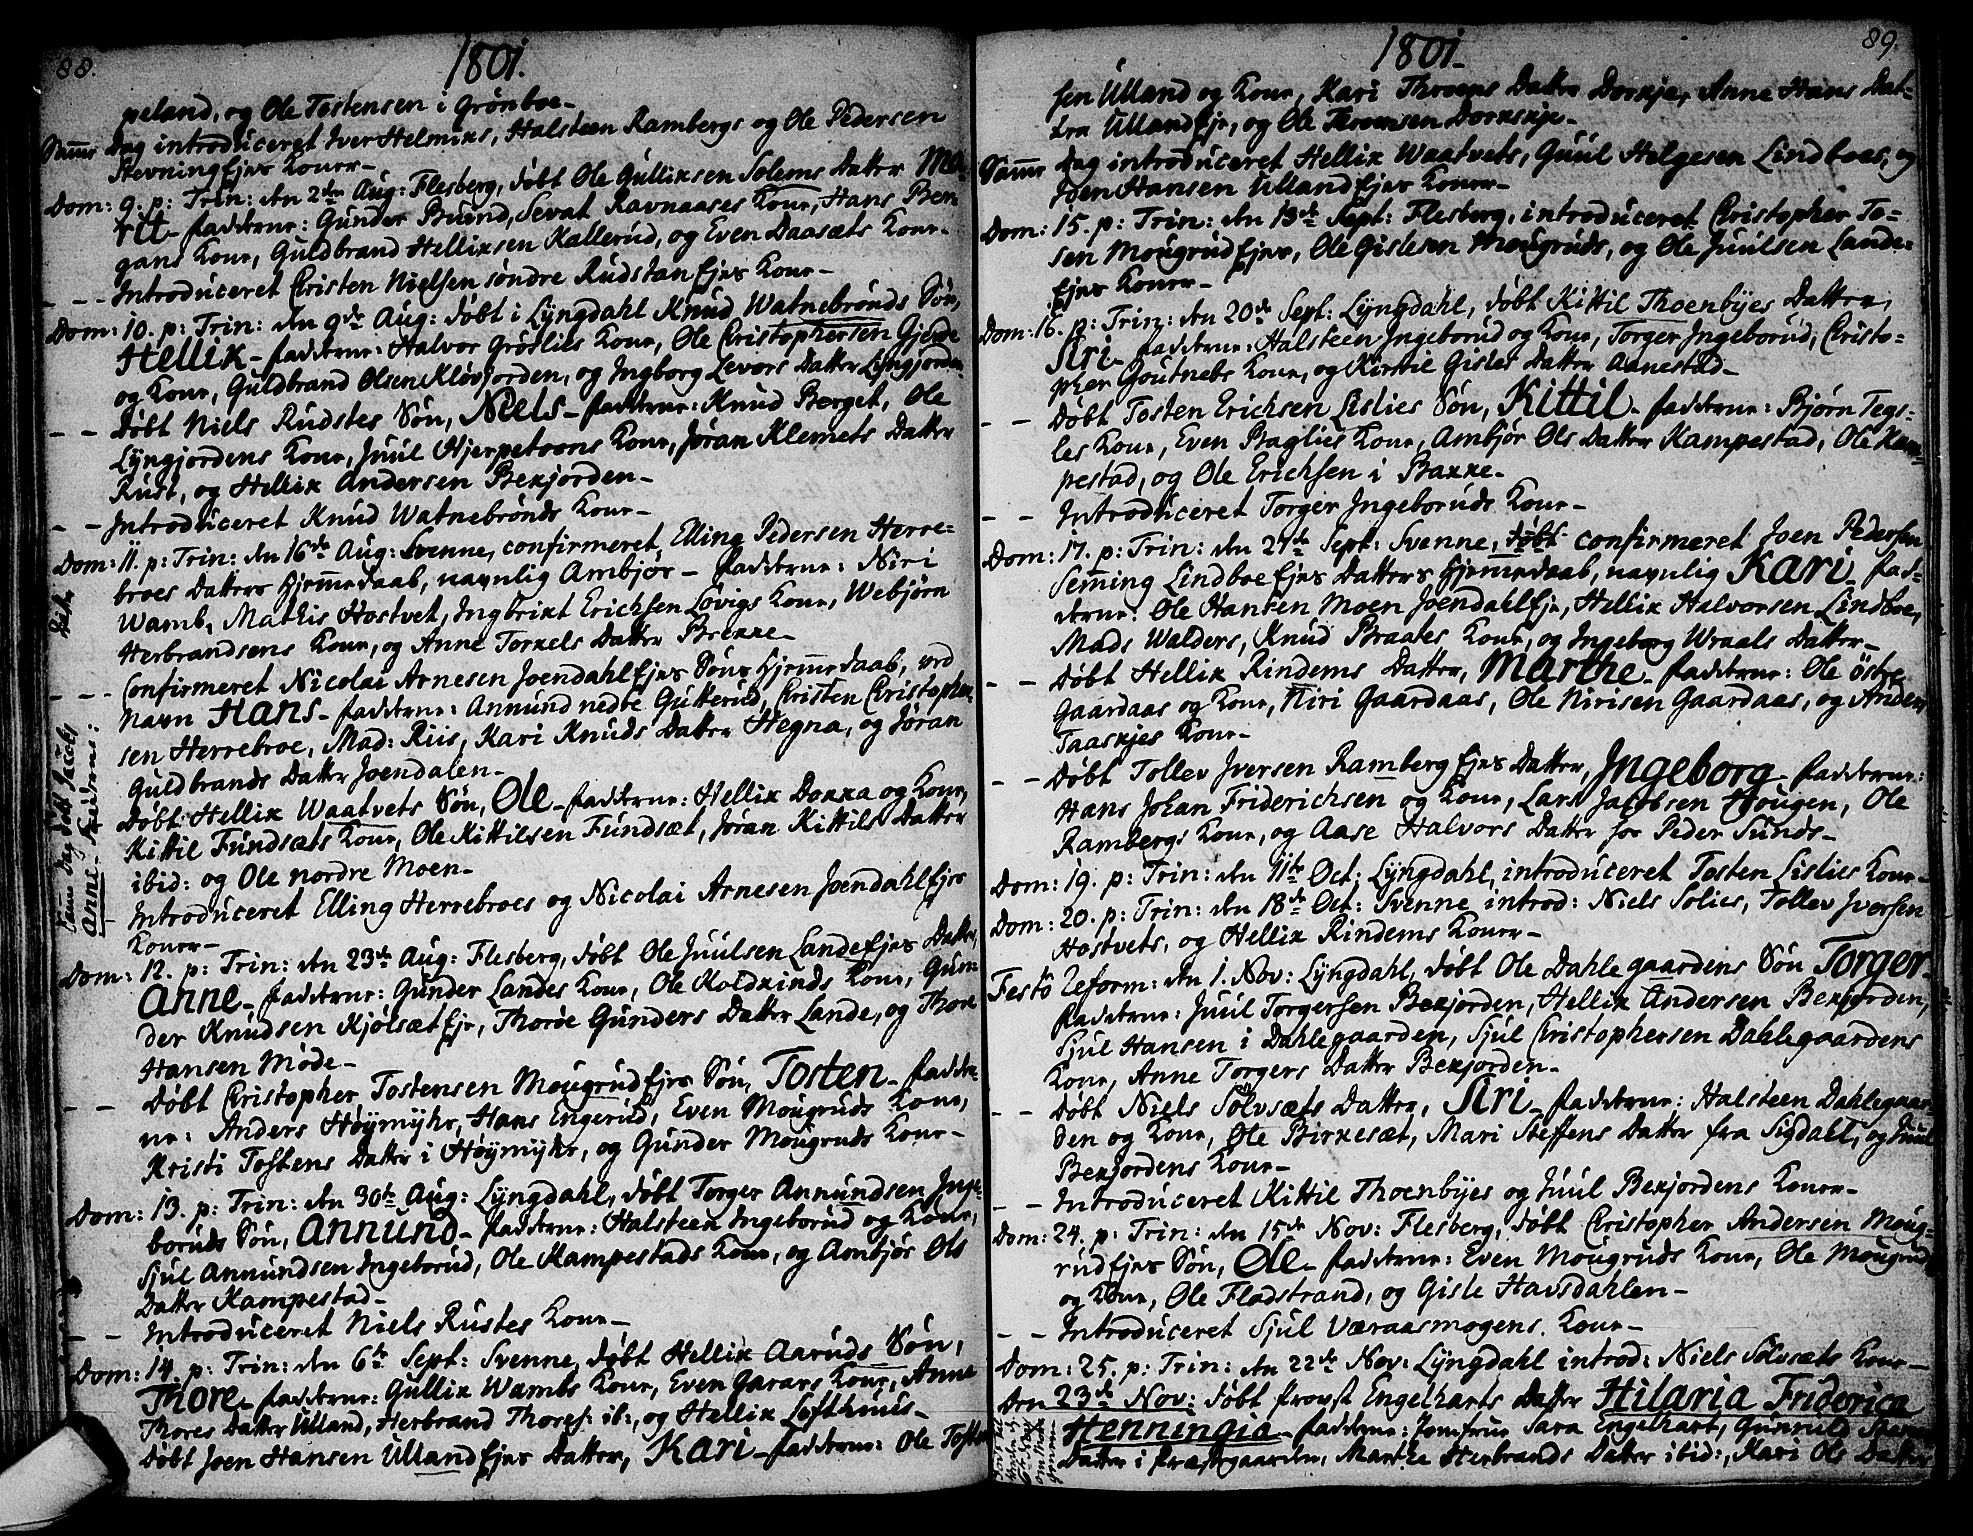 88.
1801.
peland, og Ole Tostensen i Grønboe-
Samme Dag introduceret Iver Helmiks, Halsteen Rambergs og Ole Pedersen
StevningEjes Koner-
Dom: 9. p: Trin: den 2den Aug: Flesberg, døbt Ole Gulliksen Solems Datter Ma-
rit- Fadderne: Gunder Buind, Sevat Ravnaases Kone, Hans Ber
gans Kone, Guldbrand Helliksen Kallerud, og Even Daasæts Kone-
- - - Introduceret Christen Nielsen søndre RudstanEjes Kone-
Dom: 10. p: Trin: den 9de Aug: døbt i Lyngdahl Knud Watnebrønds Søn,
Hellik- Fadderne: Halvor Grøslies Kone, Ole Christophersen Gjerde
og Kone, Guldbrand Olsen Kløvjorden, og Ingborg Levors Datter Lyngjorden-
- - Døbt Niels Rudstes Søn, Niels- Fadderne: Knud Berget, Ole
Lyngjordens Kone, Juul Hjerpetoens Kone, Jøran Klemets Datter
Rust, og Hellik Andersen Bekjorden-
- - Introduceret Knud Watnebrønds Kone-
Dom: 11. p: Trin: den 16de Aug: Svenne, confirmeret Elling Pedersen Herre=
broes Datters Hjemmedaab, navnlig Ambjør- Fadderne: Niri
Wamb, Mathis Hostvet, Ingbrikt Erichsen Løvigs Kone, Webjørn
Herbrandsens Kone, og Anne Torkels Datter Brekke-
- - - Confirmeret Nicolai Arnesen JoendahlEjes Søns Hjemmedaab, ved
Navn Hans- Fadderne: Annund nedre Gutterud, Christen Christopher-
sen Herrebroe, Mad: Riis, Kari Knuds Datter Hegna, og Jøran
Guldbrands Datter Joendalen-
Døbt Hellik Waatvets Søn, Ole- Fadderne: Hellik Dokka og Kone,
Kittil Fundsæts Kone, Ole Kittilsen Fundsæt, Jøran Kittils Datter
ibid: og Ole nordre Moen-
- Introduceret Elling Herrebroes og Nicolai Arnesen JoendahlEjes
Koner-
Dom: 12. p: Trin: den 23de Aug: Flesberg, døbt Ole Juulsen LandeEjes Datter,
Anne- Fadderne: Gunder Landes Kone, Ole Koldkinds Kone, Gun-
der Knudsen KjølsætEje, Thorøe Gunders Datter Lande, og Thore
Hansen Møde-
- - Døbt Christopher Tostensen MougrudEjes Søn, Tosten- Fadder-
ne: Anders Høymyhr, Hans Engerud, Even Mougruds Kone,
Kristi Tostens Datter i Høymyhr, og Gunder Mougruds Kone-
Dom: 13. p: Trin: den 30te Aug: Lyngdahl, døbt Torger Annundsen Inge-
boruds Søn, Annund- Fadderne: Halsteen Ingeborud og Kone,
Sjul Annundsen Ingeborud, Ole Kampestads Kone, og Ambjør Ols
Datter Kampestad-
- - Introduceret Niels Rustes Kone-
Dom: 14. p: Trin: den 6te Sept: Svenne, døbt Hellik Aaruds Søn,
Thore- Fadderne: Gullik Wambs Kone, Even Garaas Kone, Anne
Thores Datter Ulland, Herbrand Thores: ib:, og Hellik Lofthuus-
Døbt Joen Hansen UllandEjes Datter, Kari- Fadderne: Ole Tosten
Samme Dag døbt Jacobs
Anne- Fadderne:
89.
1801.
sen Ulland og Kone, Kari Throens Datter Dorkje, Anne Hans Dat-
ter UllandEje, og Ole Thronsen Dorkje-
Samme Dag introduceret Hellik Waatvets, Guul Helgesen Lindboes, og
Joen Hansen UllandEjes Koner-
Dom: 15. p: Trin: den 13de Sept: Flesberg, introduceret Christopher To=
sen MougrudEjes, Ole Gislesen Mougruds, og Ole Juulsen Lande=
Ejes Koner-
Dom: 16. p: Trin: den 20de Sept: Lyngdahl, døbt Kittil Thoenbyes Datter,
Siri- Fadderne: Halsteen Ingeborud og Kone, Torger Ingeborud, Christo-
pher Goutnebs Kone, og Kirstie Gisles Datter Aanestad-
- - Døbt Tosten Erichsen Lislies Søn, Kittil- Fadderne: Bjørn Tegs-
les Kone, Even Baglies Kone, Ambjør Ols Datter Kampestad, Ole Kam-
pestad, og Ole Erichsen i Bakke-
- - Introduceret Torger Ingeboruds Kone-
Dom: 17. p: Trin: den 27de Sept: Svenne, døbt confirmeret Joen Pedersen
Semming LindboeEjes Datters Hjemmedaab, navnlig Kari- Fad-
derne: Ole Hansen Moen JoendahlEje, Hellik Halvorsen Lindboe,
Mads Walders, Knud Braates Kone, og Ingeborg Wraals Datter-
- - Døbt Hellik Rindems Datter, Marthe- Fadderne: Ole østre
Gaardaas og Kone, Niri Gaardaas, Ole Nirisen Gaardaas, og Anders
Taaskjes Kone-
- - Døbt Tollev Iversen RambergEjes Datter, Ingeborg- Fadderne:
Hans Johan Friderichsen og Kone, Lars Jacobsen Hougen, Ole
Rambergs Kone, og Aase Halvors Datter hos Peder Sunds-
Dom: 19. p: Trin: den 11te Oct: Lyngdahl, introduceret Tosten Lislies Kone-
Dom: 20. p: Trin: den 18de Oct: Svenne, introd: Niels Solies, Tollev Iversen
Hostvets, og Hellik Rindems Koner-
Festo Reform: den 1. Nov: Lyngdahl, døbt Ole Dahlegaardens Søn Torger-
Fadderne: Juul Torgersen Bekjorden, Hellik Andersen Bekjorden,
Sjul Hansen i Dahlegaarden, Sjul Christophersen Dahlegaardens
Kone, Anne Torgers Datter Bekjorden-
- - Døbt Niels Sølvsæts Datter, Siri- Fadderne: Halsteen Dahlegaar-
den og Kone, Ole Birkesæt, Mari Steffens Datter fra Sigdahl, og Juul
Bekjordens Kone-
- - Introduceret Kittil Thoenbyes og Juul Bekjordens Koner-
Dom: 24. p: Trin: den 15de Nov: Flesberg, døbt Christopher Andersen Moug=
rudEjes Søn, Ole- Fadderne: Even Mougruds Kone, Ole Mougrud
og Kone, Ole Fladstrand, og Gisle Havsdahlen-
- - Introduceret Sjul Væraasmogens Kone-
Dom: 25. p: Trin: den 22de Nov: Lyngdahl introd: Niels Sølvsæts Kone-
den 23de Nov: døbt Provst Engelharts Datter Hilaria Friderica
Henningia- Fadderne: Jomfrue Sara Engelhart, Gunnild
Datter i Præstegaarden, Marthe Herbrands Datter ibid:, Kari Ols Datter